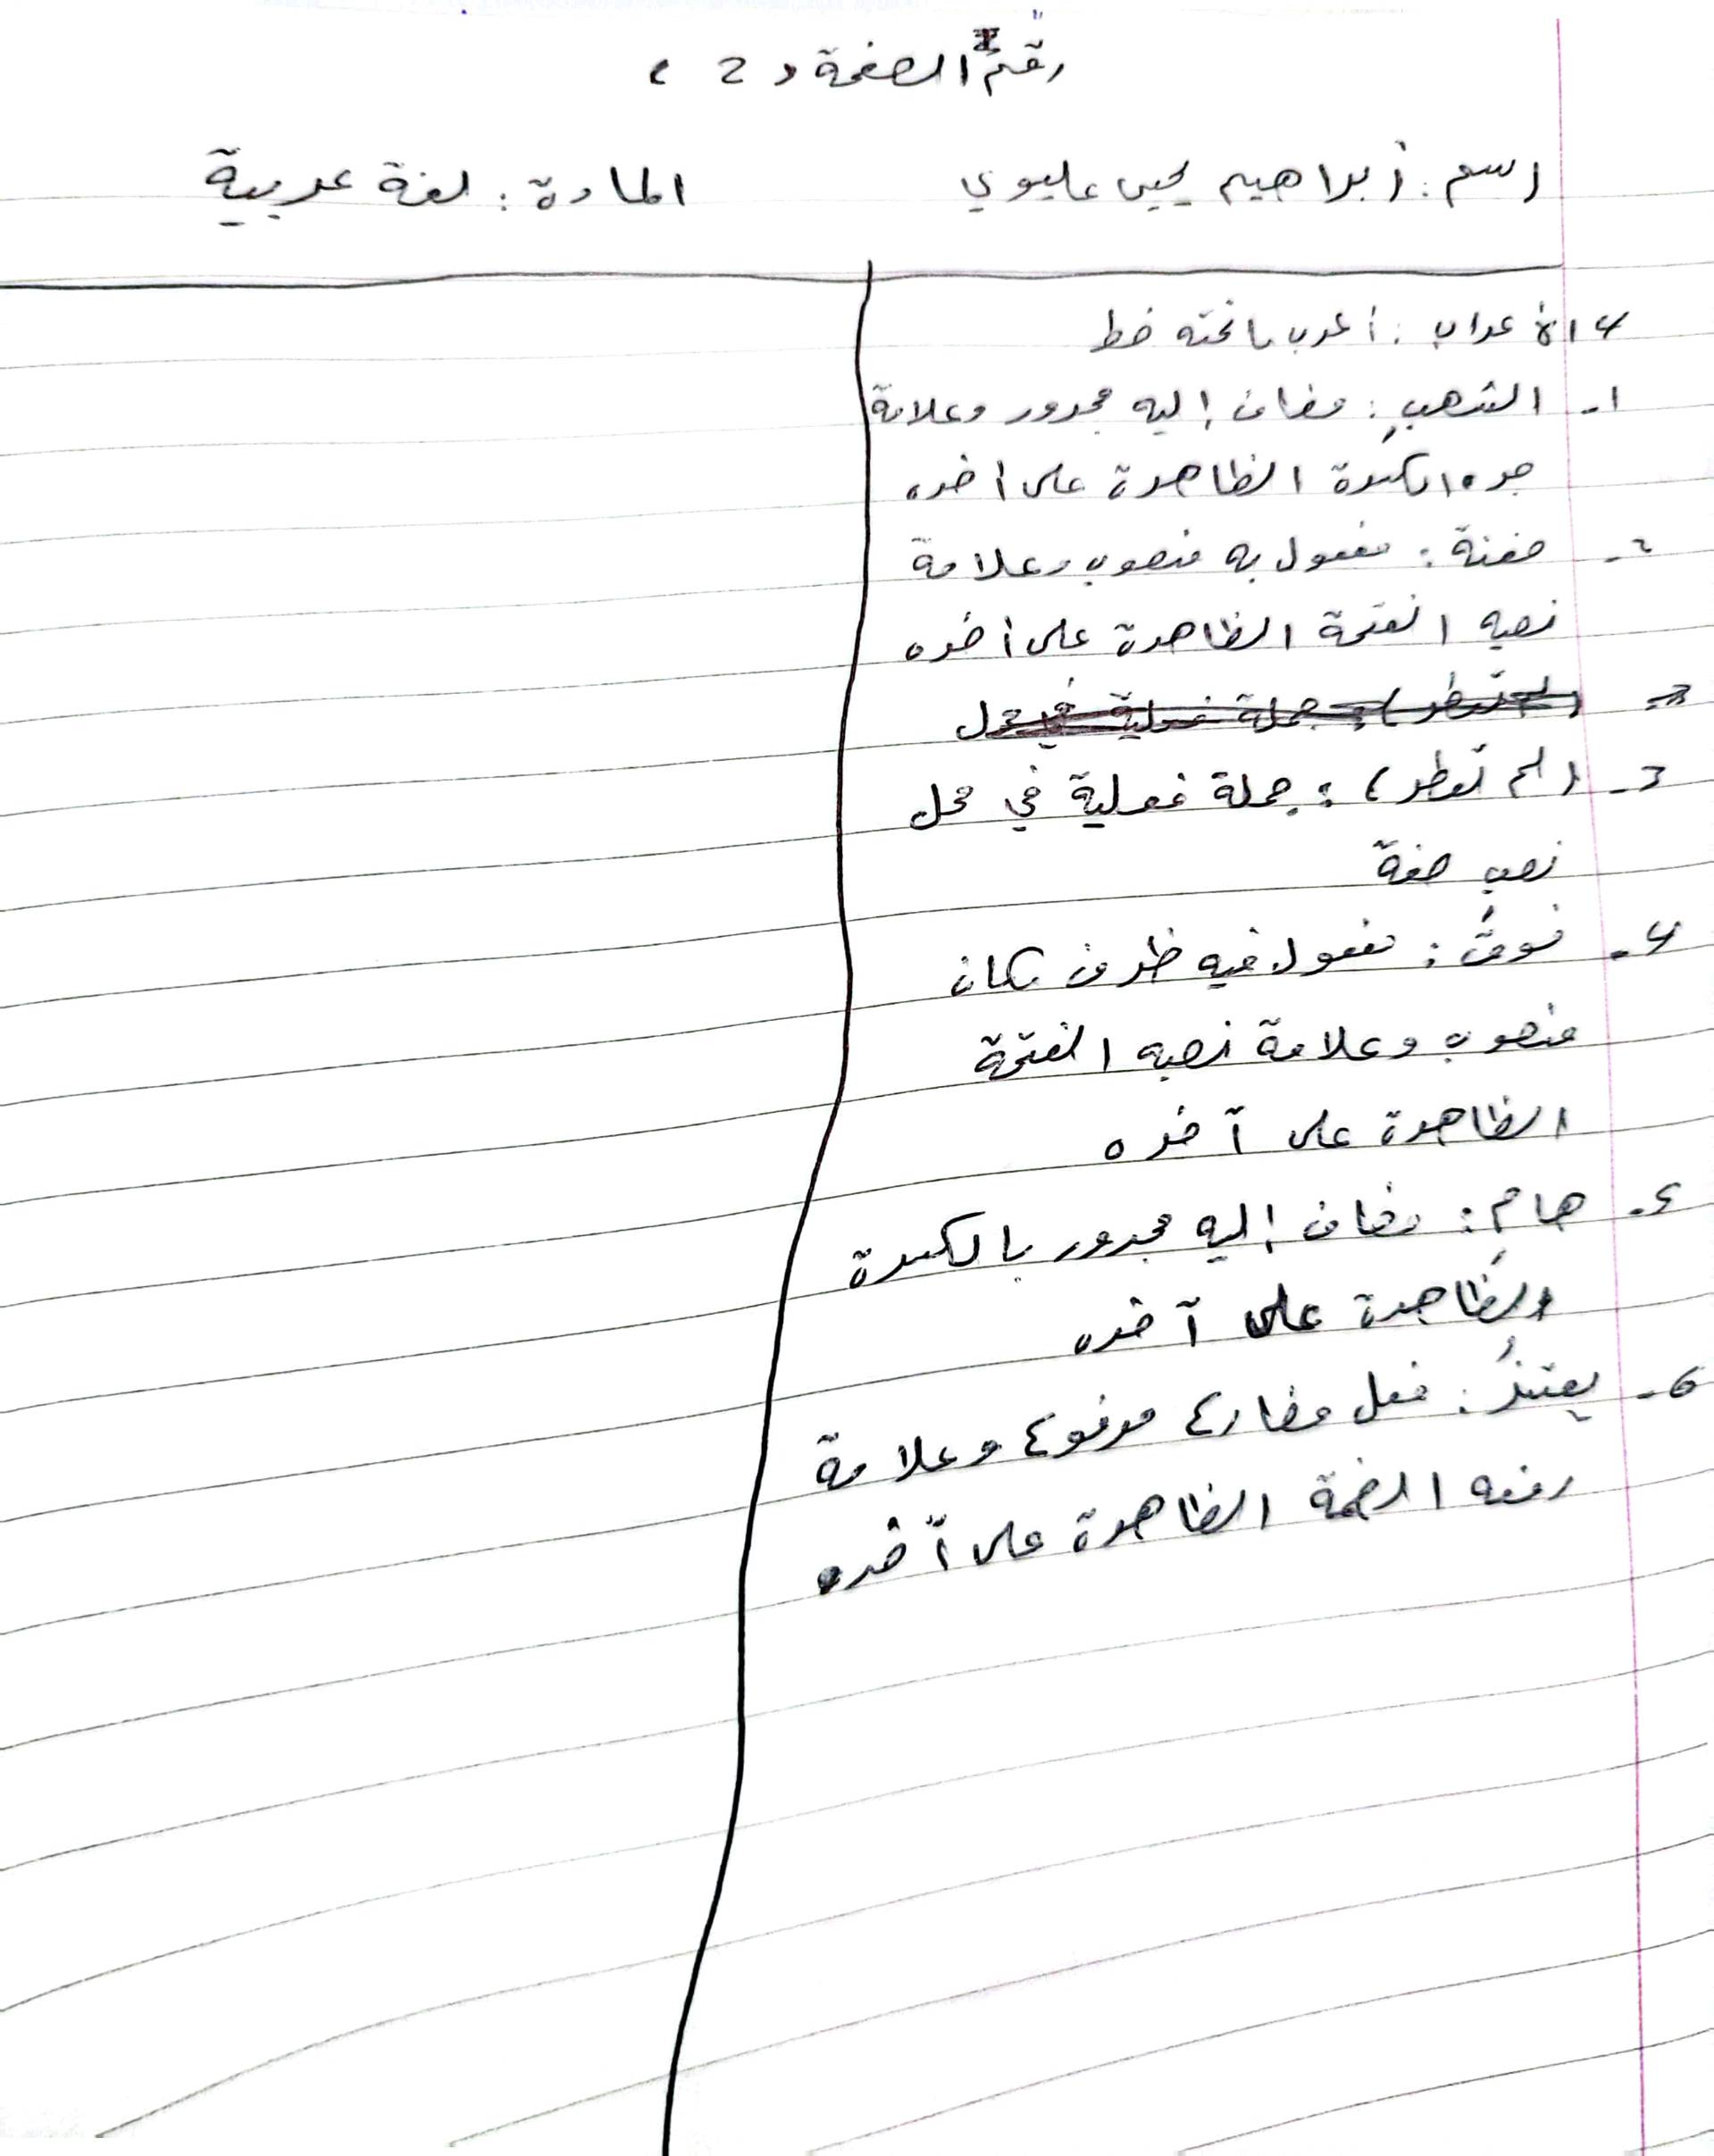 رقم الصفحة (2)
اسم: إبراهيم يحيى عليوي
المادة: لغة عربية
4 الإعراب: أعرب ما تحته خط
1- الشهبِ: مضاف إليه مجرور وعلامة
جره الكسرة الظاهرة على أخره
2- حفنة: مفعول به منصوب وعلامة
نصبه الفتحة الظاهرة على أخره
3- (لم تمطر): جملة فعلية في محل
3- (لم تمطر): جملة فعلية في محل
نصب صفة
4- فوقَ: مفعول فيه ظرف مكان
منصوب وعلامة نصبه الفتحة
الظاهرة على آخره
5- هامِ: مضاف إليه مجرور بالكسرة
الظاهرة على آخره
6- يهتزُ: فعل مضارع مرفوع وعلامة
رفعه الضمة الظاهرة على آخره